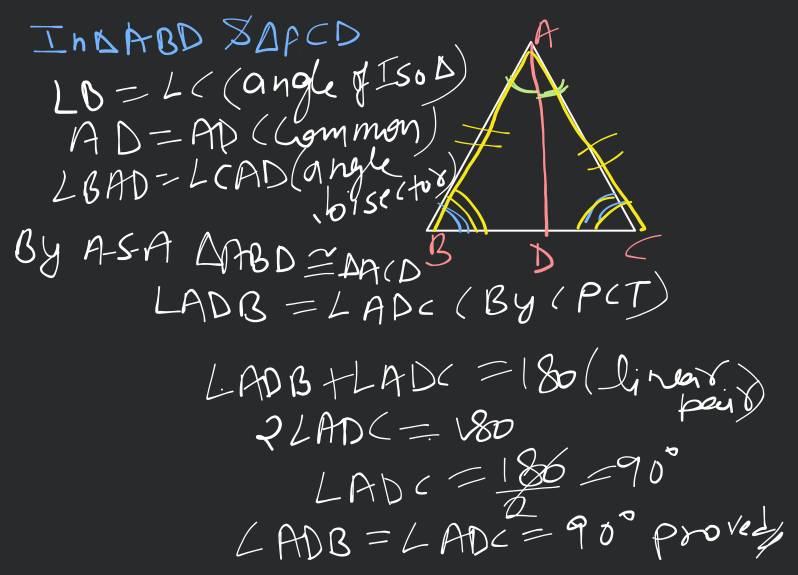 In Δ ABD & Δ ACD
∠B = ∠C (angle of Iso Δ)
AD = AD (Common)
∠BAD = ∠CAD (angle bisector)
By A-S-A Δ ABD ≅ Δ ACD
∠ADB = ∠ADC (By CPCT)
∠ADB + ∠ADC = 180 (linear pair)
2∠ADC = 180
∠ADC = 180/2 = 90°
∠ADB = ∠ADC = 90° proved
A
B D C